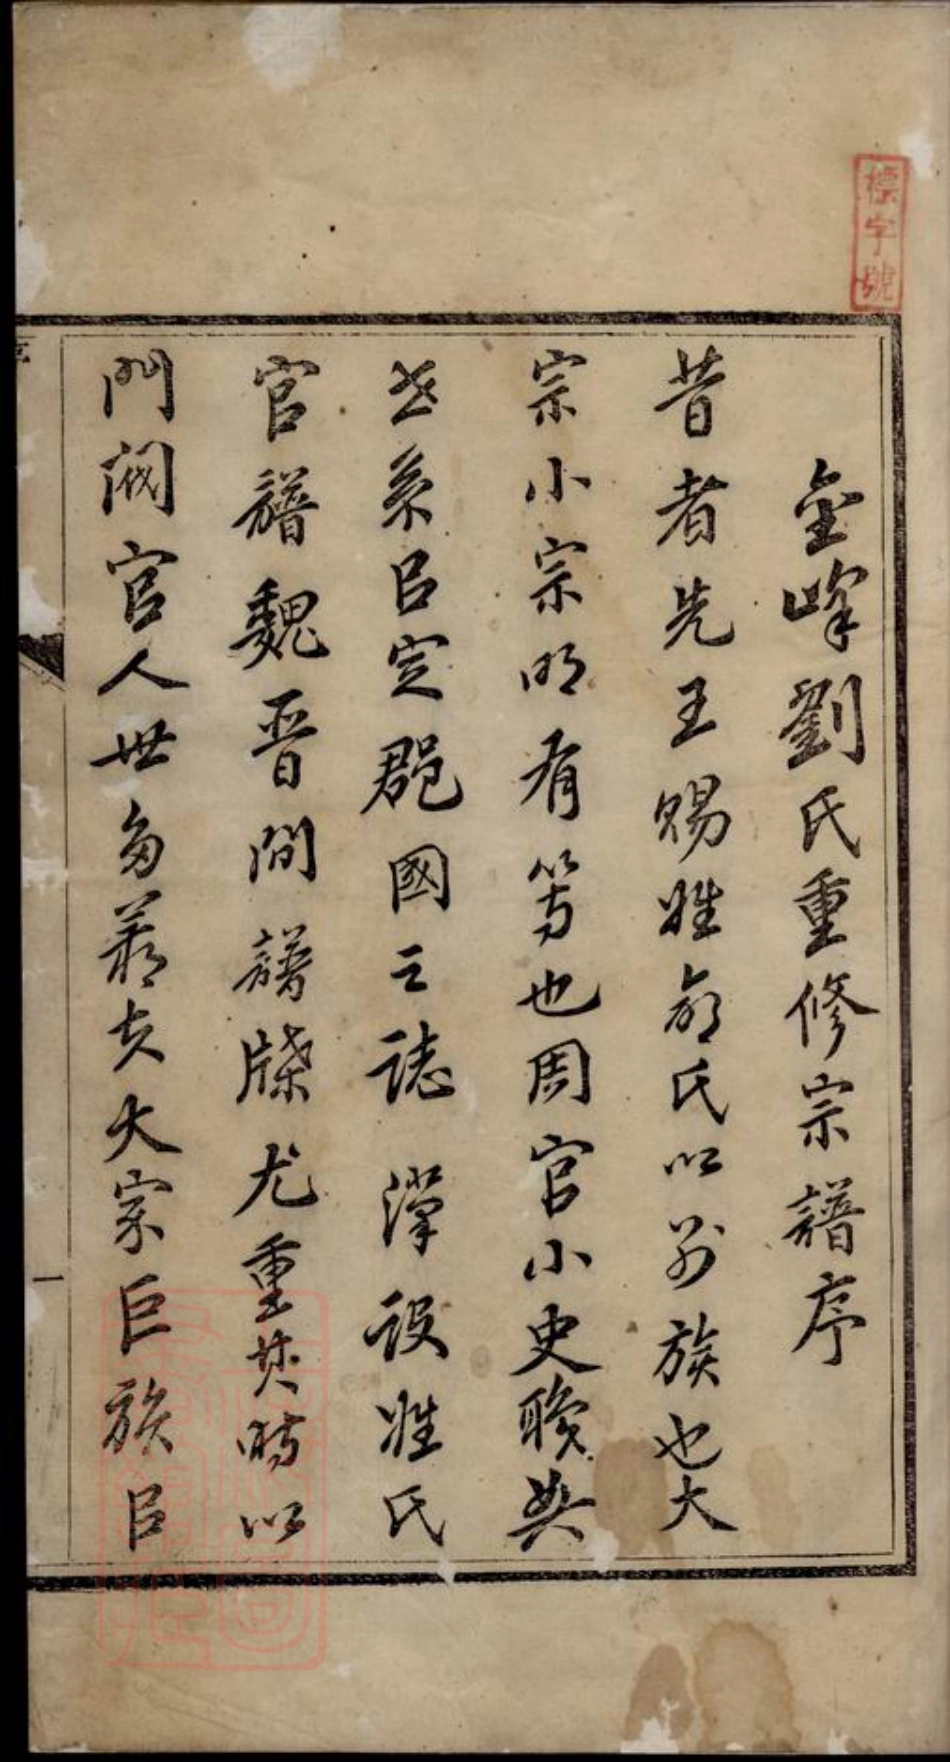 標字號
金峰劉氏重修宗譜序
昔者先王賜姓命氏以別族也大
宗小宗明有等也周官小史職奠
世系以定郡國之誌漢設姓氏
官譜魏晋間譜牒尤重其時以
門閥官人世多羨夫大家巨族以
序
一